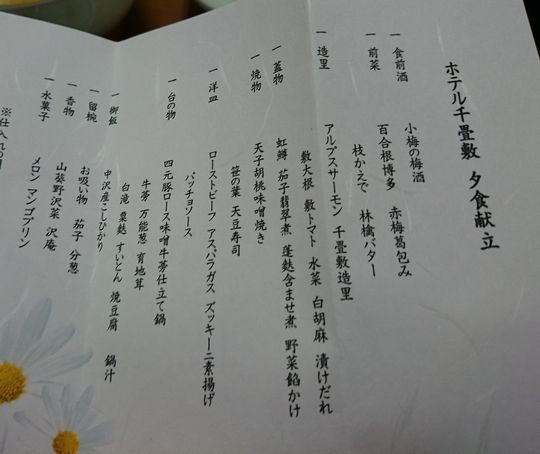 ホテル千畳敷 夕食献立
一 食前酒
小梅の梅酒
一 前菜
百合根博多 赤梅葛包み
枝かえで 林檎バター
一 造里
アルプスサーモン 千畳敷造里
敷大根 敷トマト 水菜 白胡麻 漬けだれ
一 蓋物
虹鱒 茄子翡翠煮 蓬麩含ませ煮 野菜餡かけ
一 焼物
天子胡桃味噌焼き
笹の葉 天豆寿司
一 洋皿
ローストビーフ アスパラガス ズッキーニ素揚げ
バッチョソース
一 台の物
四元豚ロース味噌牛蒡仕立て鍋
牛蒡 万能葱 育地茸
白滝 粟麩 すいとん 焼豆腐 鍋汁
一 御飯
中沢産こしひかり
一 留椀
お吸い物 茄子 分葱
一 香物
山葵野沢菜 沢庵
一 水菓子
メロン マンゴプリン
※仕入れの